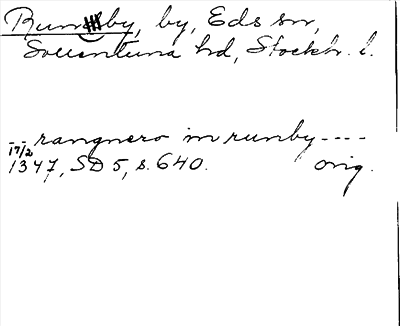 Runby, by, Eds sn,
Sollentuna hd, Stockh. l.
-- rangnero in runby ----
17/2
1347, SD 5, s. 640. orig.